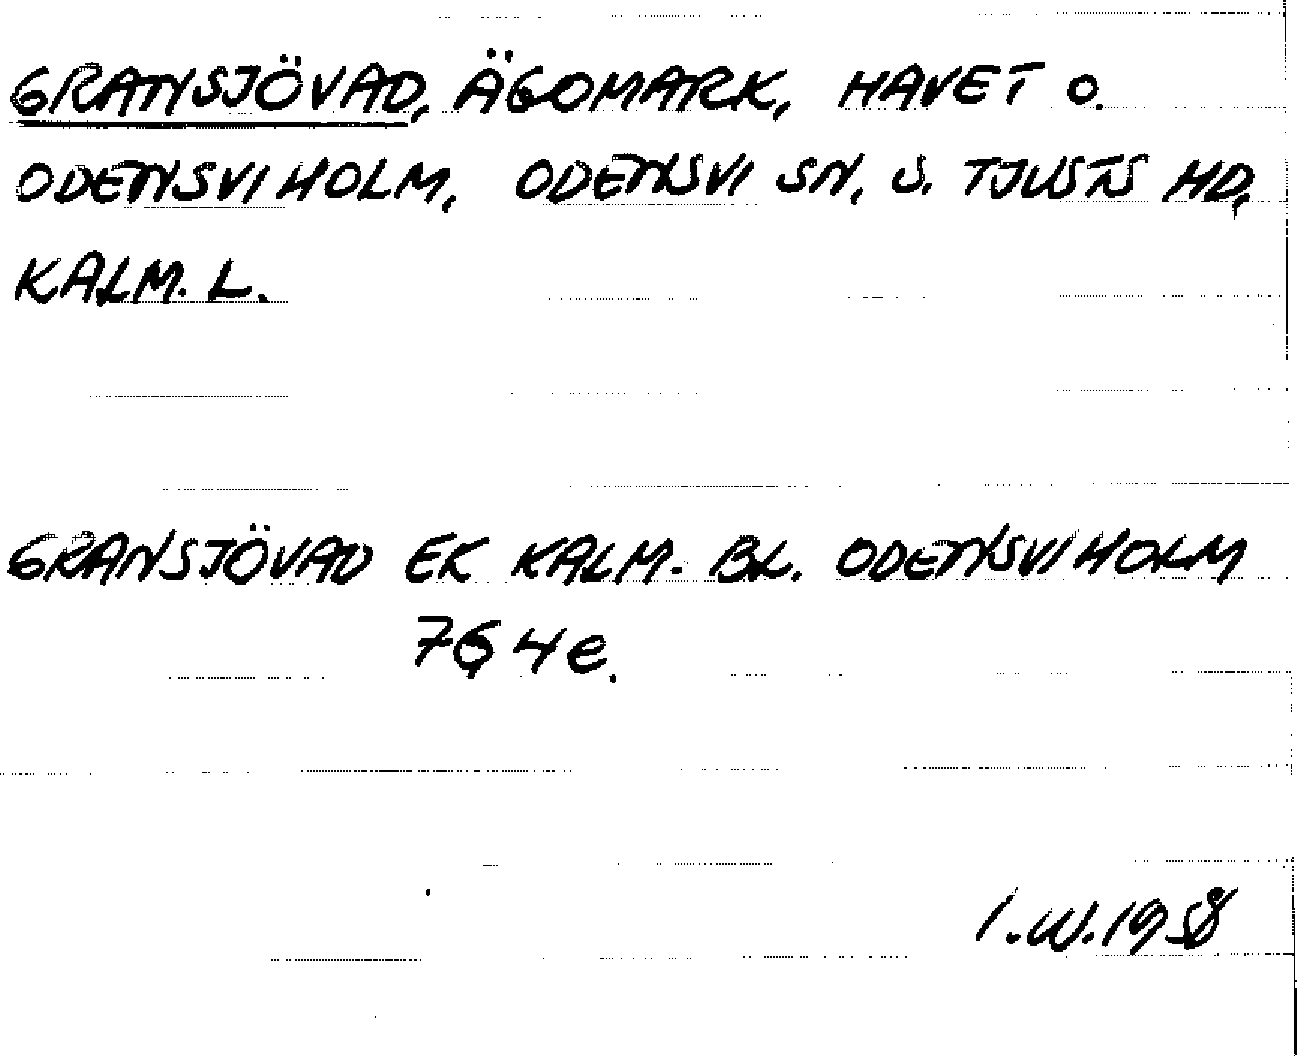 GRANSJÖVAD, ÄGOMARK, HAVET O.
ODENSVIHOLM, ODENSVI SN, S. TJUSTS HD,
KALM. L.
GRANSJÖVAD EK KALM. BL. ODENSVIHOLM
7G 4e.
I.W.1958